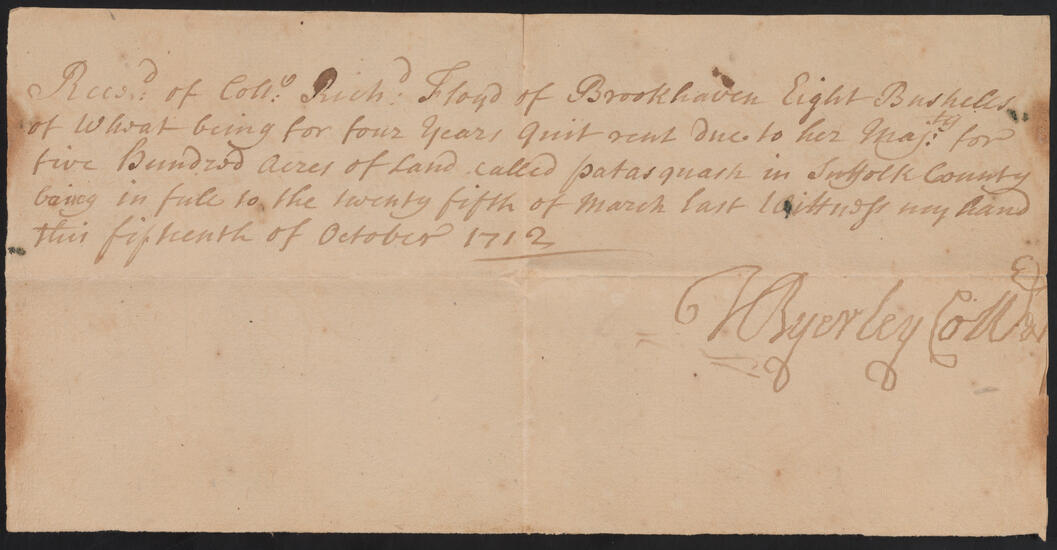 Recd. of Collo. Richd. Floyd of Brookhaven Eight Bushells
of Wheat being for four Years Quit rent due to her Majty. for
five Hundred Acres of Land called patasquash in Suffolk County
being in full to the twenty fifth of March last Wittness my hand
this fifteenth of October 1712
Byerley Coll